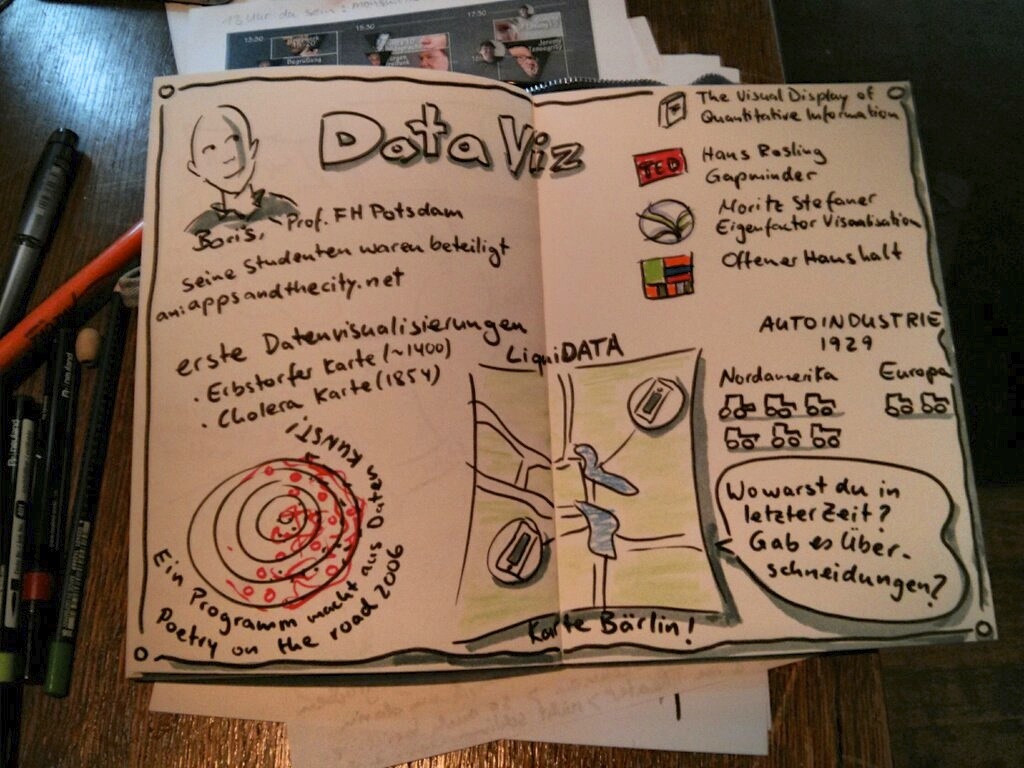 13:30
15:30
17:30
Begrüßung
Jeremy
Data Viz
Boris, Prof. FH Potsdam
seine Studenten waren beteiligt
an: appsandthecity.net
erste Datenvisualisierungen
. Erbstorfer Karte (~1400)
. Cholera Karte (1854)
Ein Programm macht aus Daten KUNST!
Poetry on the road 2006
LiquiDATA
Karte Bärlin!
The Visual Display of
Quantitative Information
TED
Hans Rosling
Gapminder
Moritz Stefaner
Eigenfactor Visualisation
Offener Haushalt
AUTOINDUSTRIE
1929
Nordamerika
Europa
Wo warst du in
letzter Zeit?
Gab es Über-
schneidungen?